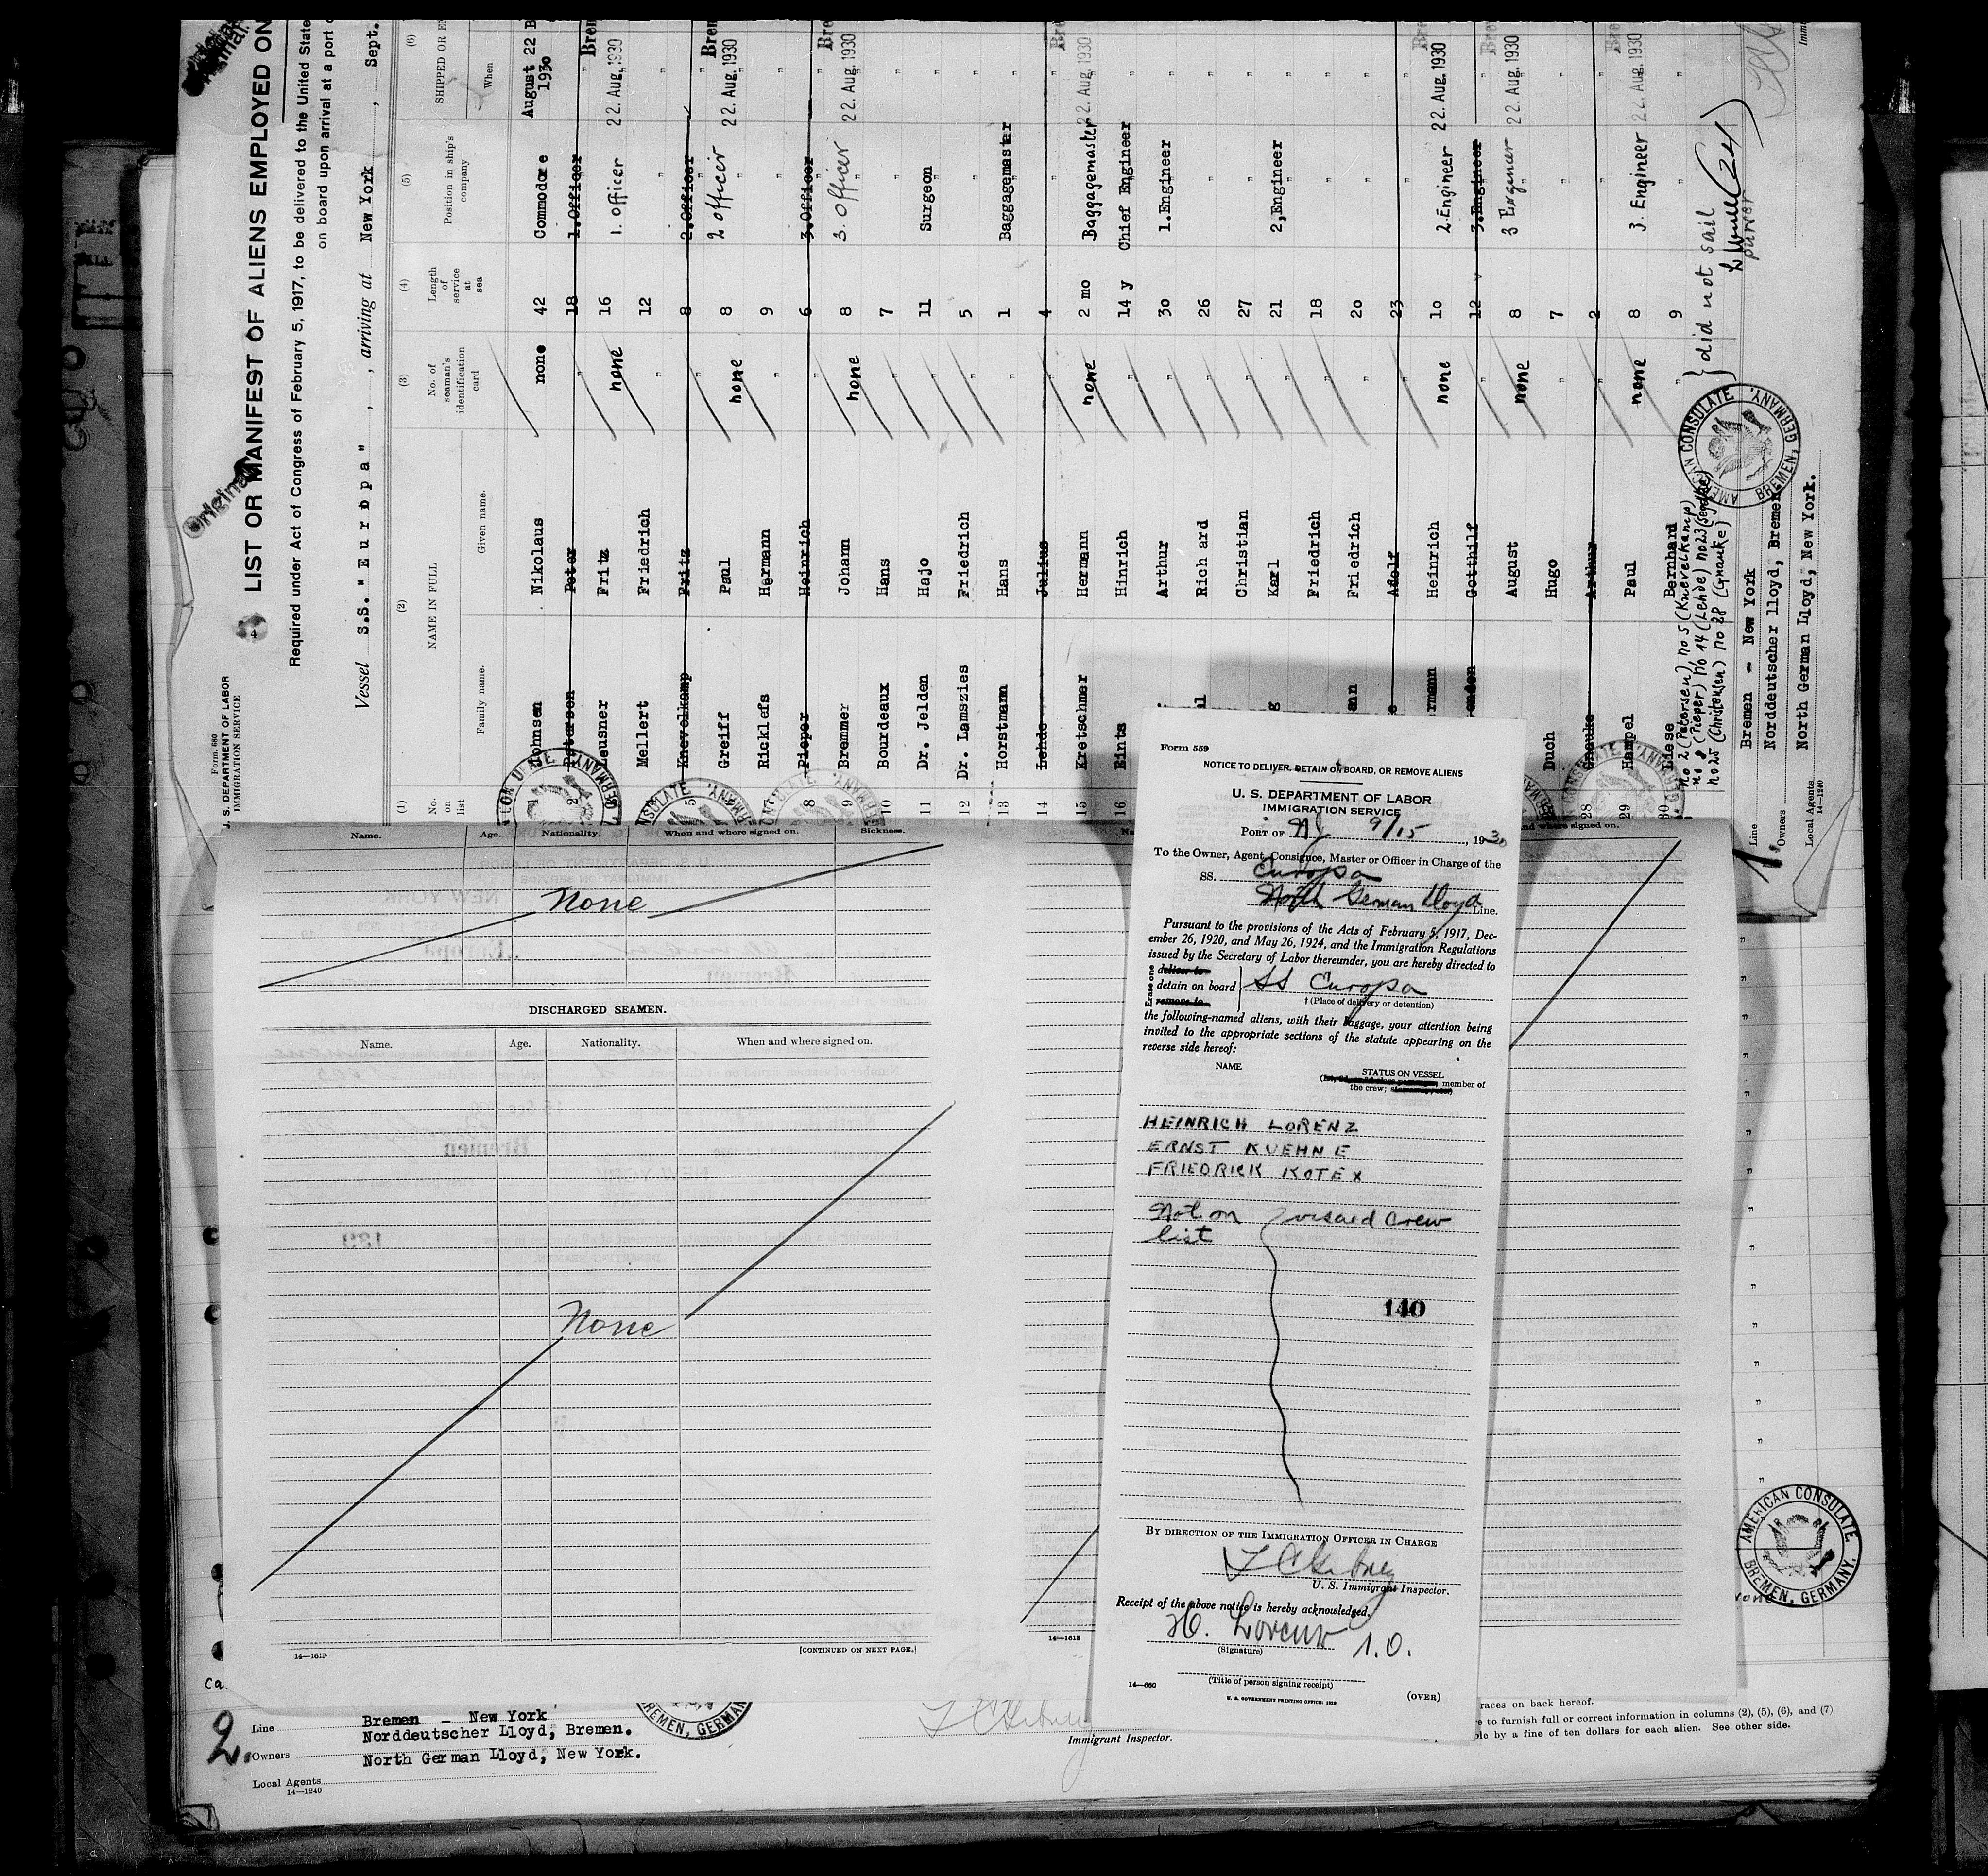 Original
Original
Form 680
U. S. DEPARTMENT OF LABOR
IMMIGRATION SERVICE
4
LIST OR MANIFEST OF ALIENS EMPLOYED ON
Required under Act of Congress of February 5, 1917, to be delivered to the United State
on board upon arrival at a port o
Vessel S.S. "Europa", arriving at New York, Sept.
(1) (2) (3) (4) (5) (6)
No. on list NAME IN FULL No. of seaman's identification card Length of service at sea Position in ship's company SHIPPED OR E
Family name. Given name. When
Johnsen Nikolaus none 42 Commodore August 22 B 1930
2 Petersen Peter " 18 1.Officer "
Leusner Fritz none 16 1. Officer 22. Aug. 1930 Brem
Mellert Friedrich " 12 " "
5 Knevelkamp Fritz " 8 2.Officer "
Greiff Paul none 8 2 Officer 22. Aug. 1930 Brem
Ricklefs Hermann " 9 " "
8 Pieper Heinrich " 6 3.Officer "
9 Bremmer Johann none 8 3. Officer 22. Aug. 1930 Bre
10 Bourdeaux Hans " 7 " "
11 Dr. Jelden Hajo " 11 Surgeon "
12 Dr. Lamszies Friedrich " 5 " "
13 Horstmann Hans " 1 Baggagemaster "
14 Lehde Julius " 4 " "
15 Kretschmer Hermann none 2 mo Baggagemaster 22. Aug. 1930 Bre
16 Eints Hinrich " 14 y Chief Engineer "
Arthur " 30 1.Engineer "
Rich ard " 26 " "
Christian " 27 " "
Karl " 21 2,Engineer "
Friedrich " 18 " "
Friedrich " 20 " "
Adolf " 23 " "
rmann Heinrich none 10 2.Engineer 22. Aug. 1930 Bre
Gotthilf " 12 3.Engineer "
August none 8 3 Engineer 22. Aug. 1930 Bre
Duch Hugo " 7 " "
28 Gnauke Arthur " 2 " "
29 Hampel Paul none 8 3. Engineer 22. Aug. 1930 Bre
30 Liese Bernhard " 9 " "
no 2 (Petersen) no 5 (Knevelkamp)
no 8 (Pieper) no 14 (Lehde) no 23 (
no 25 (Christensen) no 28 (Gnauke)
} did not sail
(24)
purser
AMERICAN CONSULATE.
BREMEN, GERMANY.
1.
Line Bremen - New York
Owners Norddeutscher lloyd, Bremen.
Local Agents North German Lloyd, New York.
14—1240
Name. Age. Nationality. When and where signed on. Sickness.
None
DISCHARGED SEAMEN.
Name. Age. Nationality. When and where signed on.
None
14—1613 [CONTINUED ON NEXT PAGE.]
14—1613
nd where signed on.
Form 559
NOTICE TO DELIVER, DETAIN ON BOARD, OR REMOVE ALIENS
U. S. DEPARTMENT OF LABOR
IMMIGRATION SERVICE
PORT OF NY 9/15, 1930
To the Owner, Agent, Consignee, Master or Officer in Charge of the
SS. Europa
North German Lloyd Line.
Pursuant to the provisions of the Acts of February 5, 1917, Dec-
ember 26, 1920, and May 26, 1924, and the Immigration Regulations
issued by the Secretary of Labor thereunder, you are hereby directed to
Erase one
deliver to
detain on board } SS Europa
remove to † (Place of delivery or detention)
the following-named aliens, with their baggage, your attention being
invited to the appropriate sections of the statute appearing on the
reverse side hereof:
NAME STATUS ON VESSEL
member of
the crew;
HEINRICH LORENZ
ERNST KUEHNE
FRIEDRICK KOTEX
Not on visaed crew
list
140
BY DIRECTION OF THE IMMIGRATION OFFICER IN CHARGE
U. S. Immigrant Inspector.
Receipt of the above notice is hereby acknowledged.
H. Lorenz 1.O.
(Signature)
(Title of person signing receipt)
14—560 U. S. GOVERNMENT PRINTING OFFICE: 1929 (OVER)
AMERICAN CONSULATE.
BREMEN, GERMANY.
2.
Line Bremen - New York
Owners Norddeutscher Lloyd, Bremen.
Local Agents North German Lloyd, New York.
14—1240
BREMEN, GERMAN
Immigrant Inspector.
races on back hereof.
re to furnish full or correct information in columns (2), (5), (6), and (7)
ble by a fine of ten dollars for each alien. See other side.